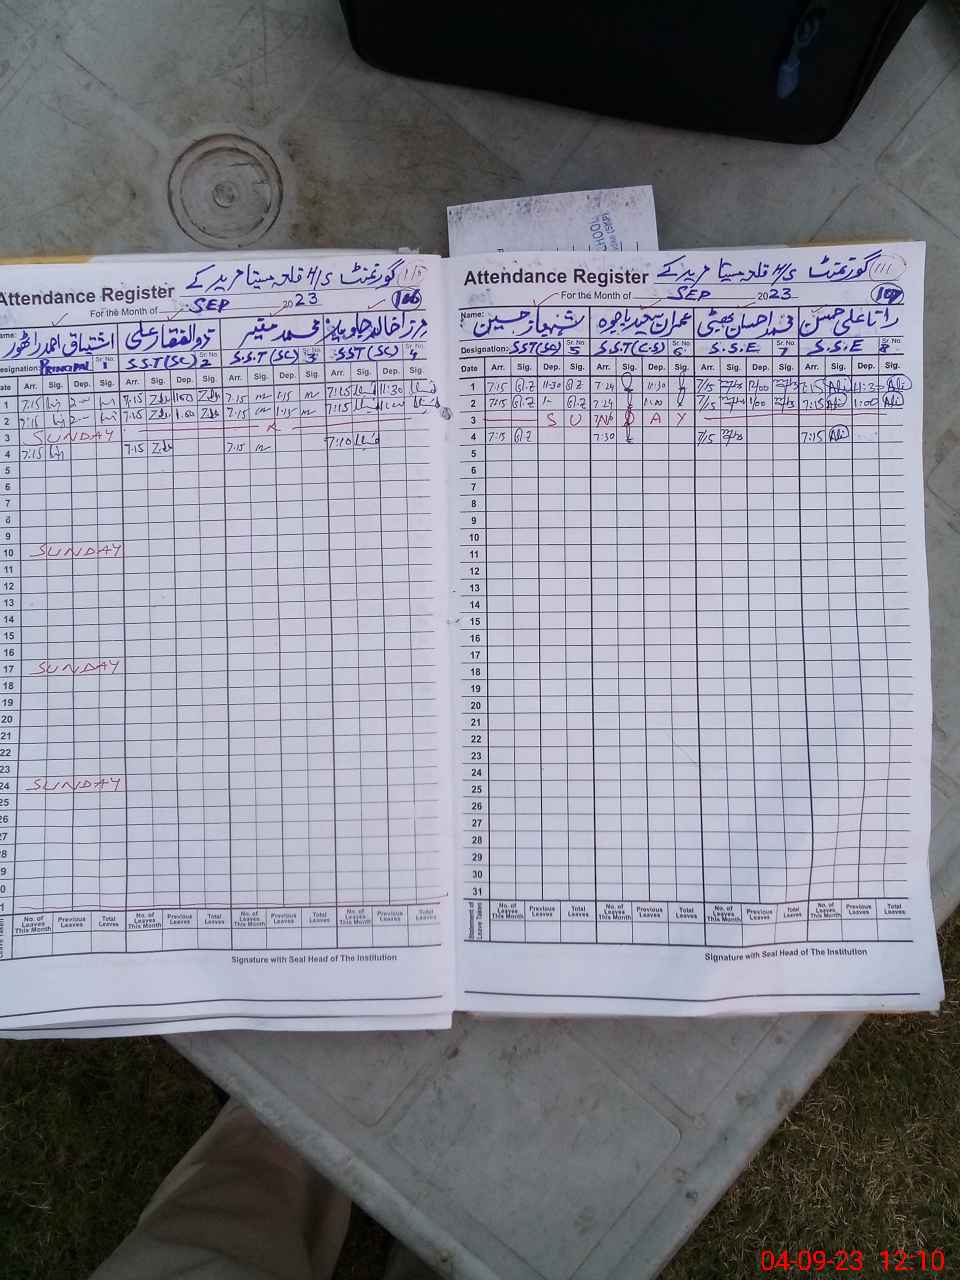 Attendance Register گورنمنٹ H/S قلعہ میتا مریدکے
For the Month of SEP 2023 106
Name: اشتیاق احمد راٹھور ذوالفقار علی محمد منیر مرزا خالد جاوید
Designation: PRINCIPAL Sr. No. 1 S.S.T (SC) Sr. No. 2 S.S.T (SC) Sr. No. 3 SST (SC) Sr. No. 4
Date Arr. Sig. Dep. Sig. Arr. Sig. Dep. Sig. Arr. Sig. Dep. Sig. Arr. Sig. Dep. Sig.
1 7:15 7:15 1:00 7:15 1:15 7:15 11:30
2 7:15 7:15 1:00 7:15 1:15 7:15 1:00
3 SUNDAY
4 7:15 7:15 7:15 7:10
5
6
7
8
9
10 SUNDAY
11
12
13
14
15
16
17 SUNDAY
18
19
20
21
22
23
24 SUNDAY
25
26
27
28
29
30
31
No. of Leaves This Month Previous Leaves Total Leaves No. of Leaves This Month Previous Leaves Total Leaves No. of Leaves This Month Previous Leaves Total Leaves No. of Leaves This Month Previous Leaves Total Leaves
Signature with Seal Head of The Institution
Attendance Register گورنمنٹ H/S قلعہ میتا مریدکے 111
For the Month of SEP 2023 107
Name: شہباز حسین عمران سعید باجوہ محمد احسان بھٹی رانا علی حسن
Designation: SST (SC) Sr. No. 5 S.S.T (C.S) Sr. No. 6 S.S.E Sr. No. 7 S.S.E Sr. No. 8
Date Arr. Sig. Dep. Sig. Arr. Sig. Dep. Sig. Arr. Sig. Dep. Sig. Arr. Sig. Dep. Sig.
1 7:15 11:30 7:24 11:30 7/15 12/00 7:15 Ali 11:30 Ali
2 7:15 7:24 1:00 7/15 1/00 7:15 Ali 1:00 Ali
3 SUNDAY
4 7:15 7:30 7/15 7:15 Ali
5
6
7
8
9
10
11
12
13
14
15
16
17
18
19
20
21
22
23
24
25
26
27
28
29
30
31
Statement of Leave Taken No. of Leaves This Month Previous Leaves Total Leaves No. of Leaves This Month Previous Leaves Total Leaves No. of Leaves This Month Previous Leaves Total Leaves No. of Leaves This Month Previous Leaves Total Leaves
Signature with Seal Head of The Institution
04-09-23 12:10